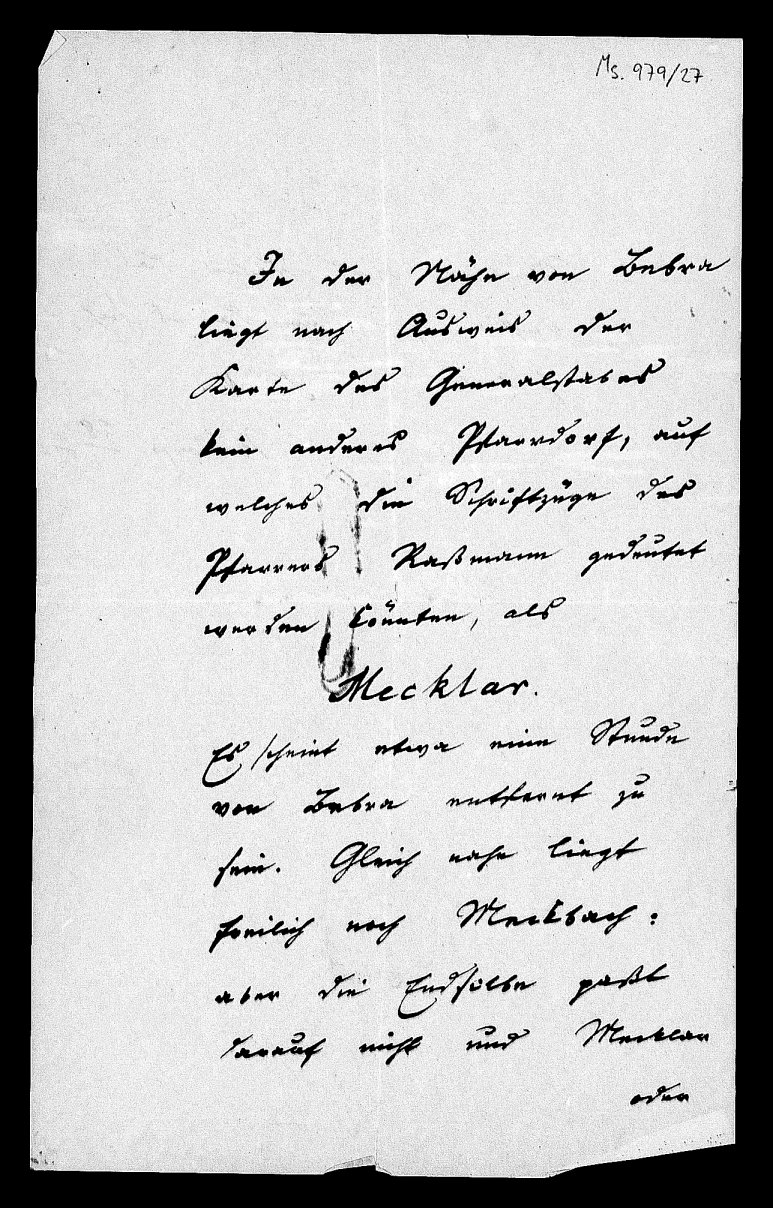 Ms. 979/27
In der Nähe von Bebra
liegt nach Ausweis der
Karte des Generalstabes
kein anderes Pfarrdorf, auf
welches die Schriftzüge des
Pfarrers Raßmann gedeutet
werden könnten, als
Mecklar.
Es scheint etwa eine Stunde
von Bebra entfernt zu
sein. Gleich nahe liegt
freilich noch Meckbach:
aber die Endsilbe paßt
darauf nicht und Mecklar
oder